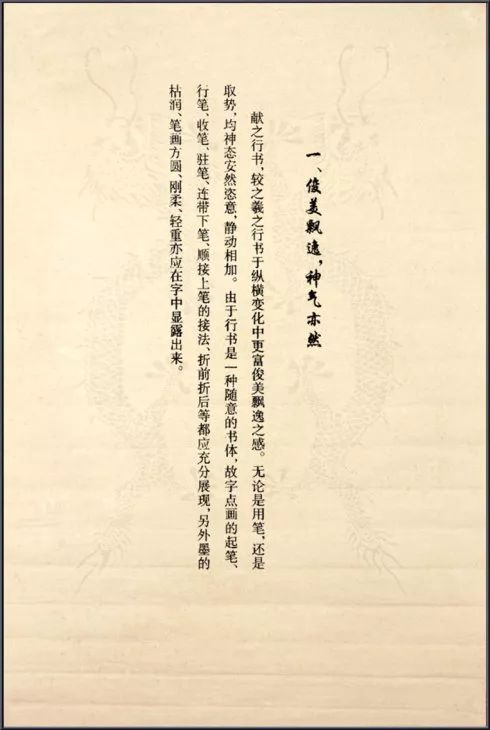 一、俊美飘逸，神气亦然
献之行书，较之羲之行书于纵横变化中更富俊美飘逸之感。无论是用笔，还是
取势，均神态安然恣意，静动相加。由于行书是一种随意的书体，故字点画的起笔、
行笔、收笔、驻笔、连带下笔、顺接上笔的接法、折前折后等都应充分展现，另外墨的
枯润、笔画方圆、刚柔、轻重亦应在字中显露出来。